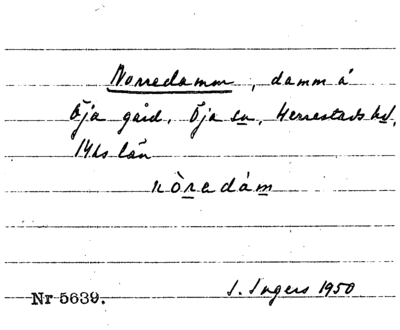 Norredamm, damm å
Öja gård, Öja sn, Herrestads hd,
Mhs län
nòredám
Nr 5639. I. Ingers 1950